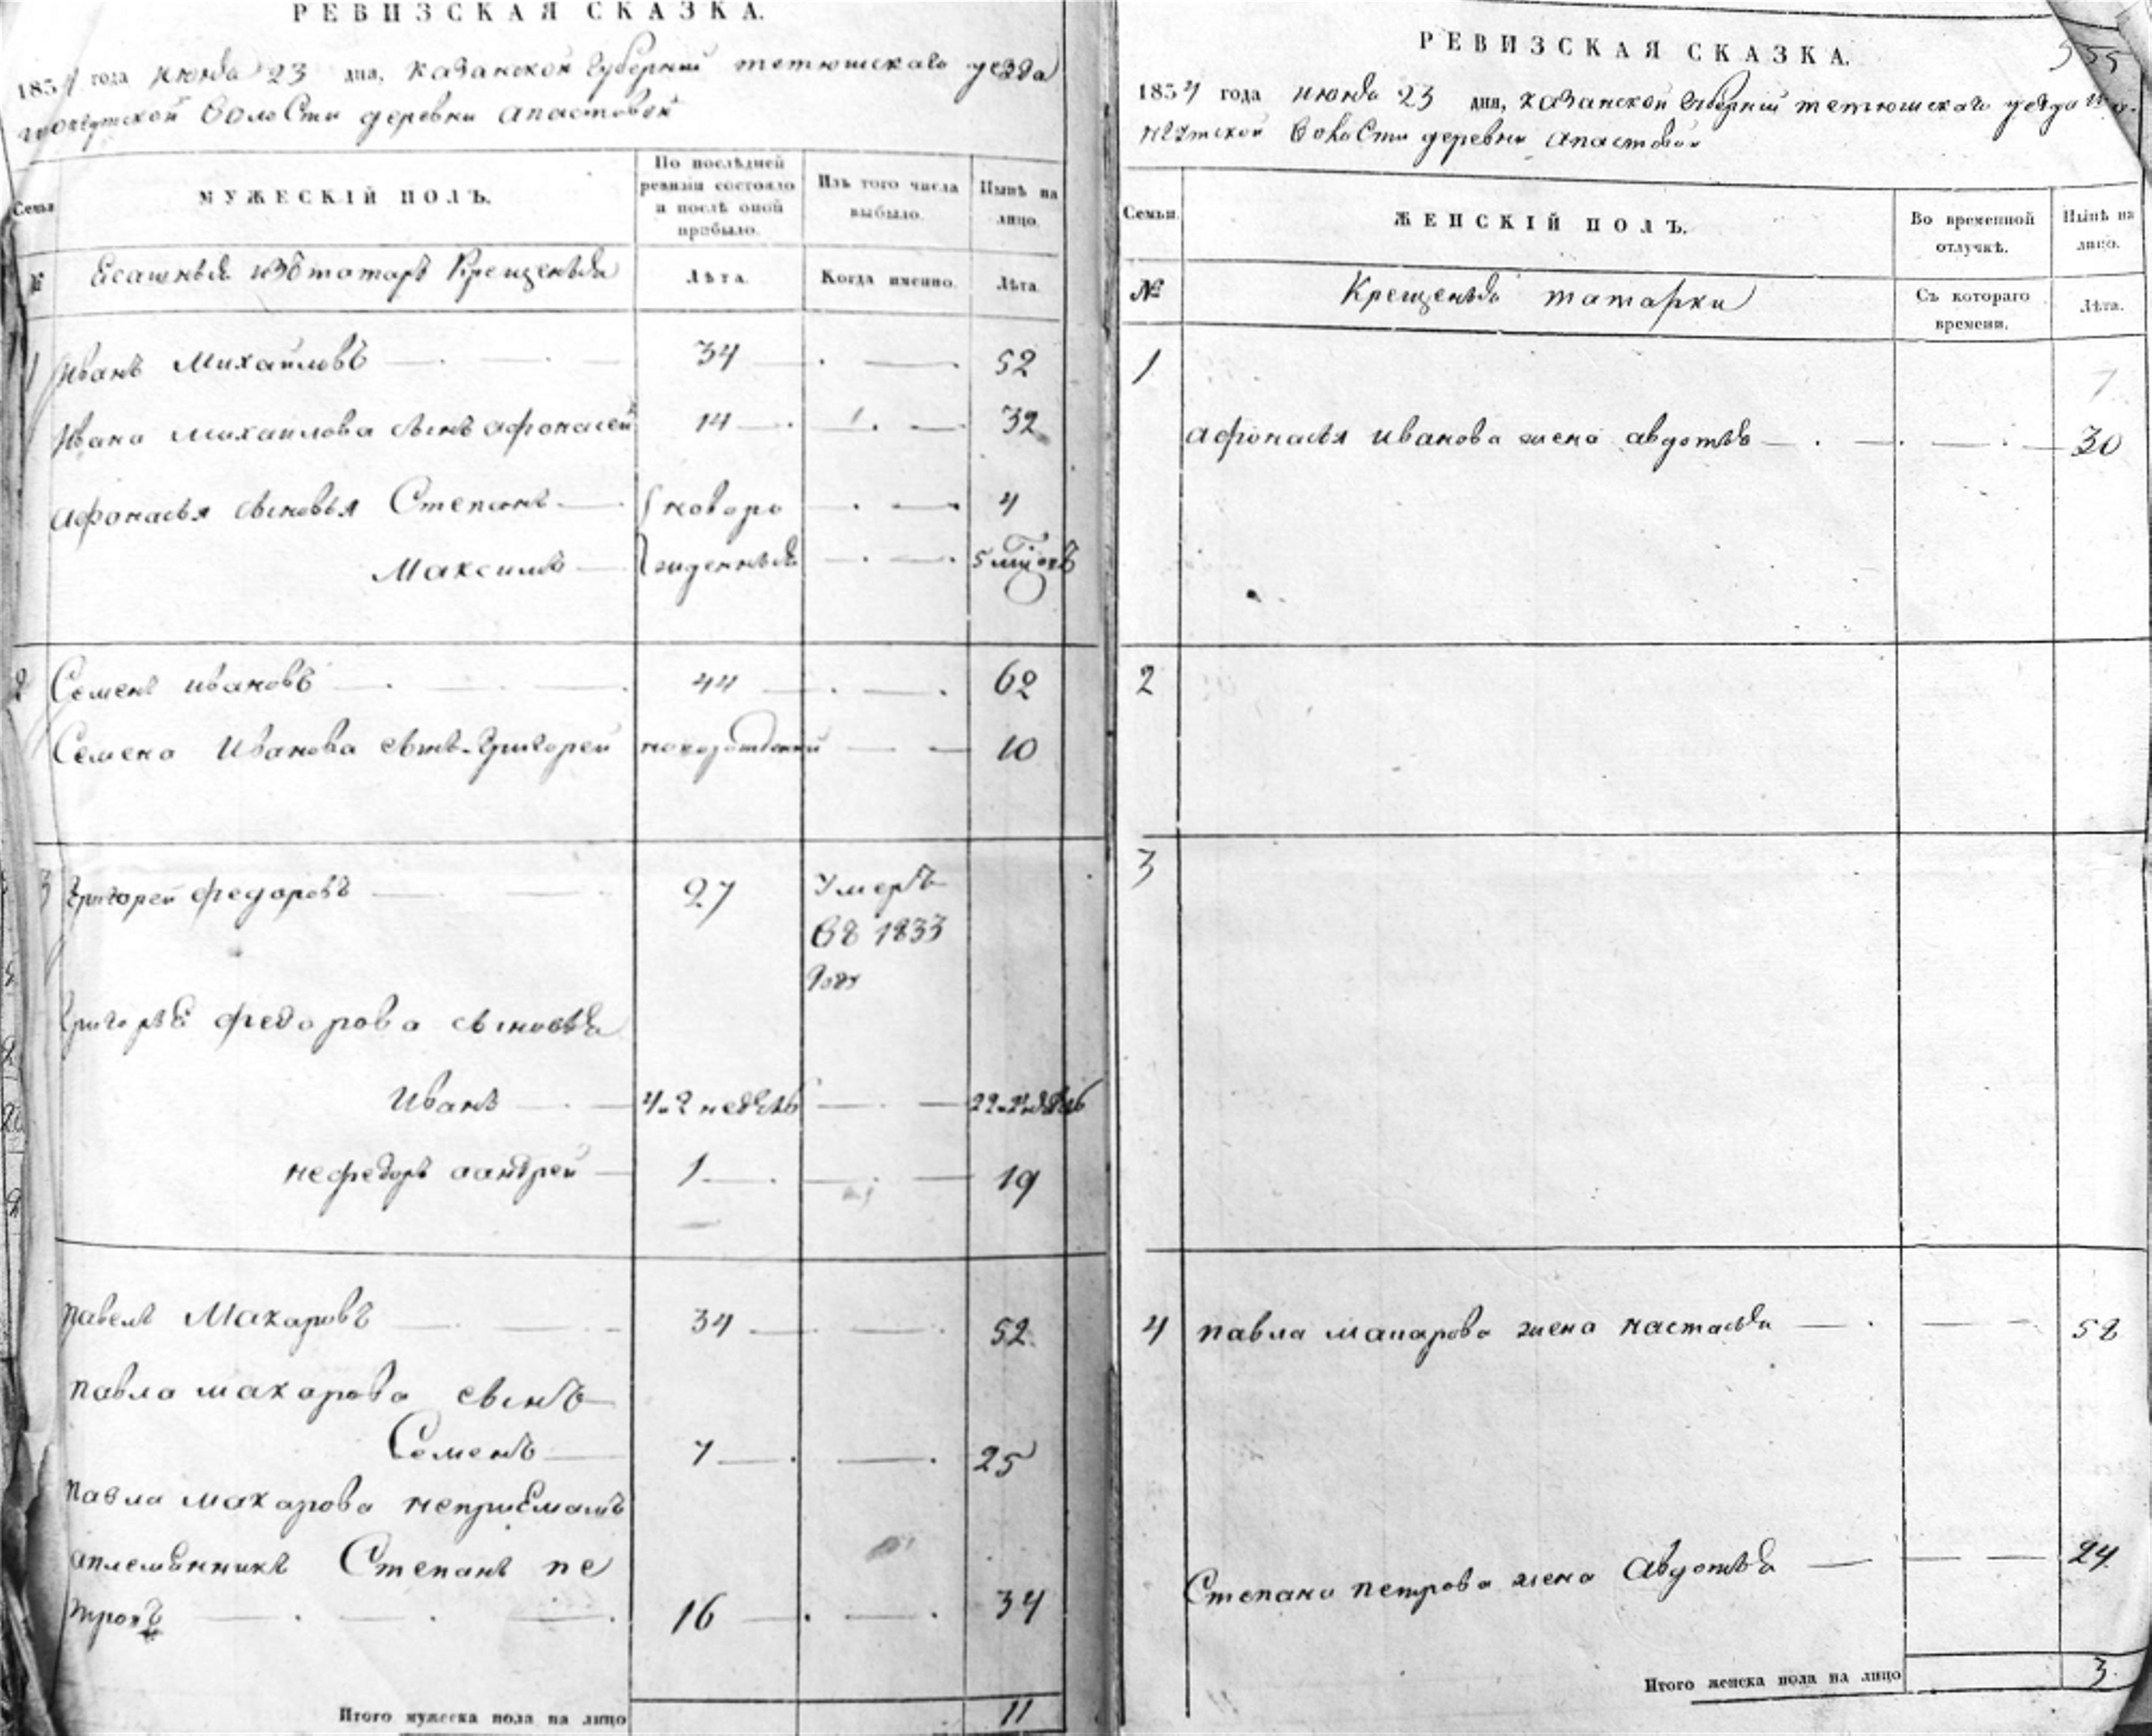 РЕВИЗСКАЯ СКАЗКА.
1834 года июня 23 дня, казанской губернии тетюшскаго уезда
волости деревни апастовой
Семьи
МУЖЕСКІЙ ПОЛЪ.
По послѣдней ревизіи состояло и послѣ оной прибыло.
Изъ того числа выбыло.
Нынѣ на лицо.
№
Есашныя изъ татаръ Крещеныя
Лѣта.
Когда именно.
Лѣта.
1 Иванъ Михайловъ 34 52
Ивана михаилова сынъ афонасей 14 32
афонасья сыновья Степанъ новоро 4
Максимъ жденныя 5
2 Семенъ ивановъ 44 62
Семена Иванова сынъ Григорей новорожденной 10
3 Григорей федоровъ 27 Умеръ
въ 1833
году
Григорья федорова сыновья
Иванъ 4. 2 недель 22. 2 недель
нефедоръ аандрей 1 19
павелъ Макаровъ 34 52
павла макарова сынъ
Семенъ 7 25
павла макарова неприемашъ
аплемянникъ Степанъ пе
тровъ 16 34
Итого мужеска пола на лицо 11
РЕВИЗСКАЯ СКАЗКА.
555
1834 года июня 23 дня, казанской губернии тетюшскаго уезда
волости деревни апастовой
Семьи.
ЖЕНСКІЙ ПОЛЪ.
Во временной отлучкѣ.
Нынѣ на лицо.
№
Крещеныя татарки
Съ котораго времени.
Лѣта.
1
афонасья иванова жена авдотья 30
2
3
4 павла макарова жена настасья 52
Степана петрова жена Авдотья 24
Итого женска пола на лицо 3